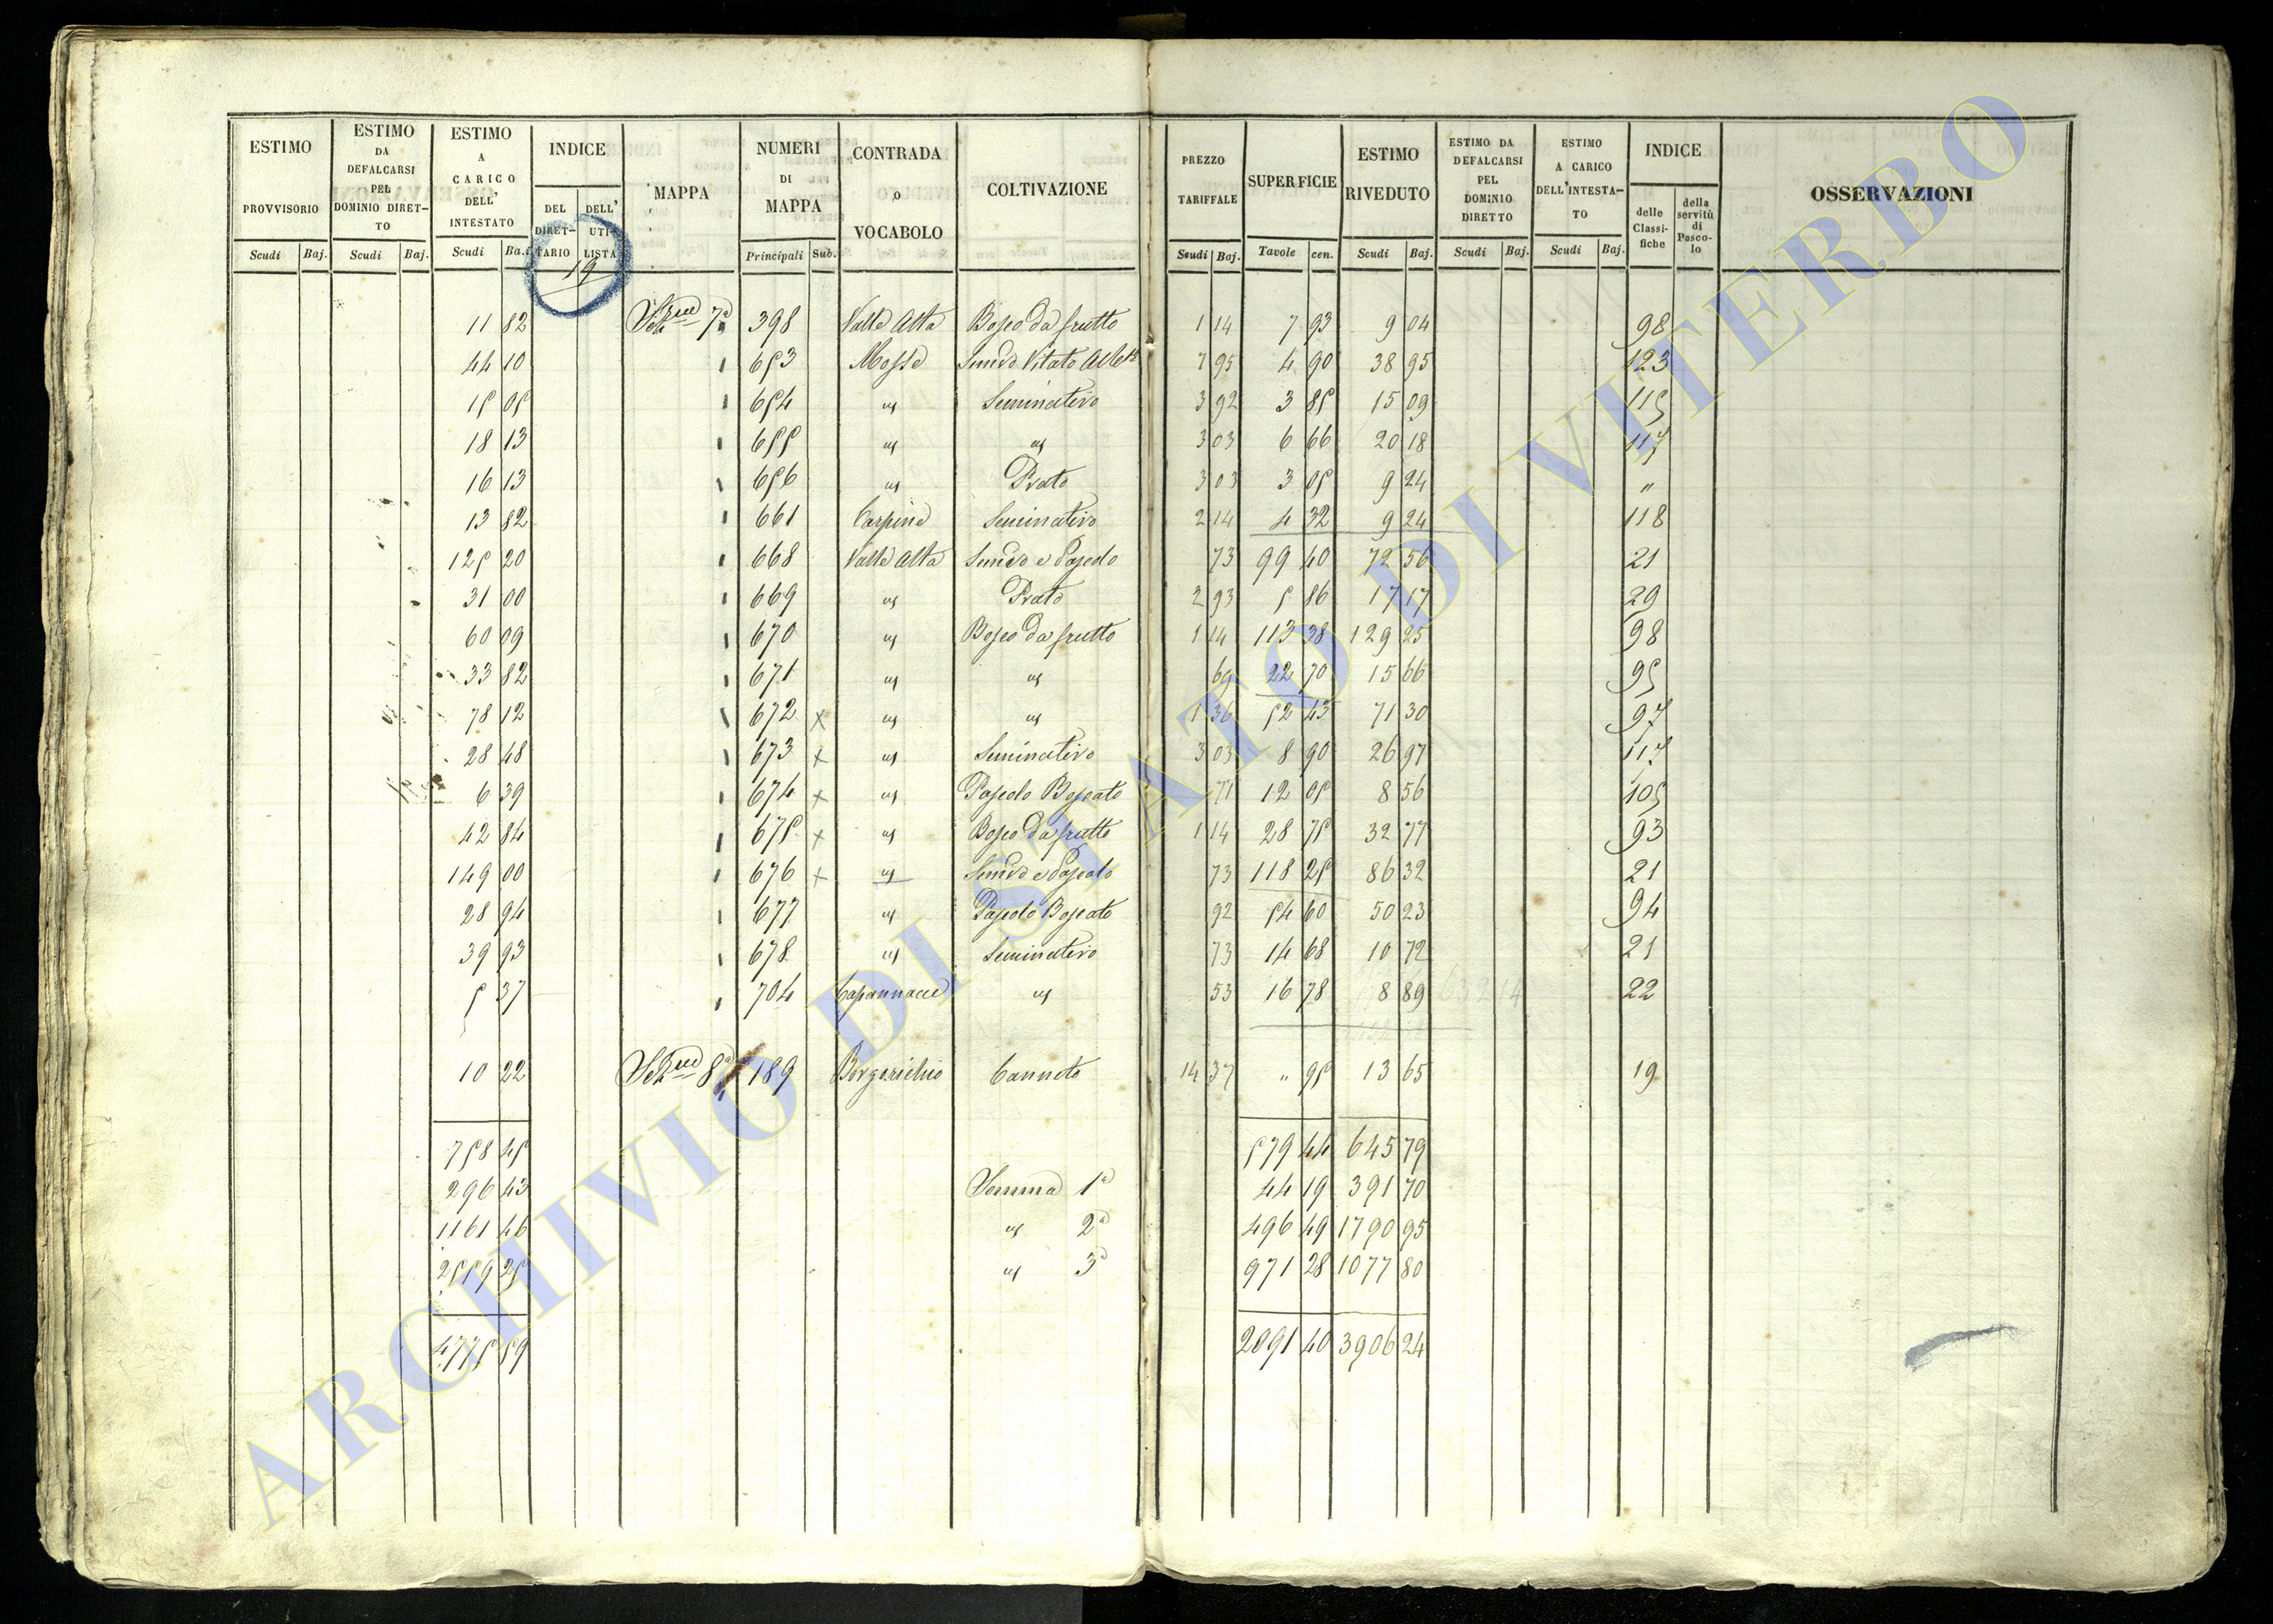 ESTIMO PROVVISORIO Scudi Baj.
ESTIMO DA DEFALCARSI PEL DOMINIO DIRET-TO Scudi Baj.
ESTIMO A CARICO DELL' INTESTATO Scudi Baj.
INDICE DEL DIRET-TARIO DELL' UTI-LISTA
19
MAPPA
NUMERI DI MAPPA Principali Sub.
CONTRADA o VOCABOLO
COLTIVAZIONE
PREZZO TARIFFALE Scudi Baj.
SUPERFICIE Tavole cen.
ESTIMO RIVEDUTO Scudi Baj.
ESTIMO DA DEFALCARSI PEL DOMINIO DIRETTO Scudi Baj.
ESTIMO A CARICO DELL'INTESTA-TO Scudi Baj.
INDICE delle Classi-fiche della servitù di Pasco-lo
OSSERVAZIONI
11 82 7a 398 Valle Alta Bosco da frutto 1 14 7 93 9 04 98
44 10 653 Mosse Semivo Vitato 7 95 4 90 38 95 123
15 05 654 " Seminativo 3 92 3 85 15 09 115
18 13 655 " " 3 03 6 66 20 18 117
16 13 656 " Prato 3 03 3 05 9 24 "
13 82 661 Carpine Seminativo 2 14 4 32 9 24 118
125 20 668 Valle Alta Semivo e Pascolo 73 99 40 72 56 21
31 00 669 " Prato 2 93 5 86 17 17 29
60 09 670 " Bosco da frutto 1 14 113 38 129 25 98
33 82 671 " " 69 22 70 15 66 95
78 12 672 x " " 1 36 52 43 71 30 97
28 48 673 x " Seminativo 3 03 8 90 26 97 117
6 39 674 x " Pascolo Boscato 71 12 05 8 56 105
42 84 675 x " Bosco da frutto 1 14 28 75 32 77 93
149 00 676 x " Semivo e Pascolo 73 118 25 86 32 21
28 94 677 " Pascolo Boscato 92 54 60 50 23 94
39 93 678 " Seminativo 73 14 68 10 72 21
5 37 704 Capannacce " 53 16 78 8 89 632 14 22
10 22 8a 189 Borgorichio Canneto 14 37 " 95 13 65 19
758 45 579 44 645 79
296 43 Somma 1a 44 19 391 70
1161 46 " 2a 496 49 1790 95
2559 25 " 3a 971 28 1077 80
4775 59 2091 40 3906 24
ARCHIVIO DI STATO DI VITERBO